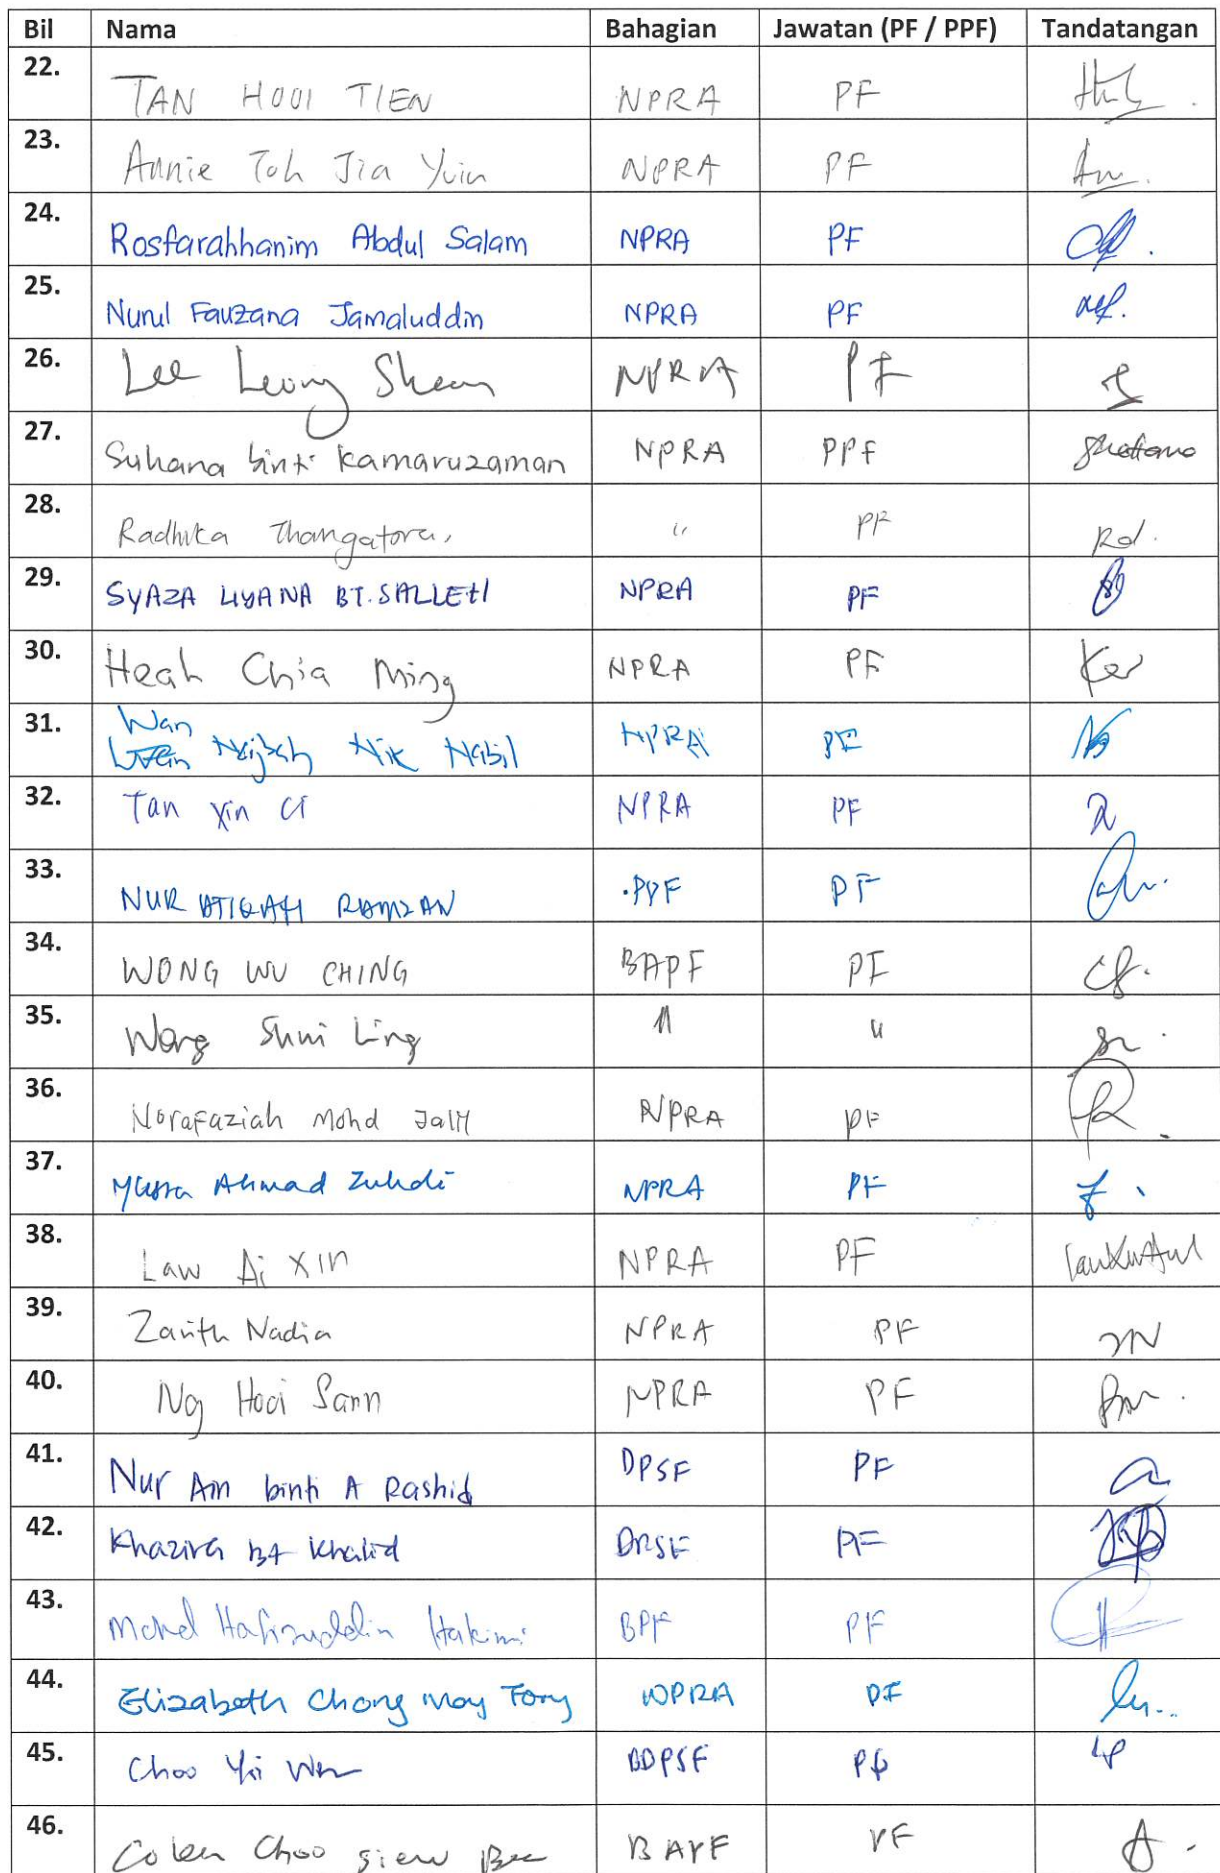 Bil Nama Bahagian Jawatan (PF / PPF) Tandatangan
22. TAN HOOI TIEN NPRA PF
23. Annie Toh Jia Yuin NPRA PF
24. Rosfarahhanim Abdul Salam NPRA PF
25. Nurul Fauzana Jamaluddin NPRA PF
26. Lee Leong Shean NPRA PF
27. Suhana binti Kamaruzaman NPRA PPF
28. Radhika " PF
29. SYAZA LIYANA BT. SALLEH NPRA PF
30. Heah Chia Ming NPRA PF
31. Wan
Najbah Nik Nabil NPRA PF
32. Tan Xin Ci NPRA PF
33. NUR ATIQAH RAMZAN PPF PF
34. WONG WU CHING BAPF PF
35. Wong Shui Ling " "
36. Norafaziah Mohd Jalil NPRA PF
37. Ahmad Zuhdi NPRA PF
38. Law Ai Xin NPRA PF
39. Zarith Nadia NPRA PF
40. Ng Hooi Sann NPRA PF
41. Nur Ain binti A Rashid DPSF PF
42. Khazira Bt Khalid DPSF PF
43. Mohd Hafizuddin Hakimi BPF PF
44. Elizabeth Chong May Fong NPRA PF
45. Choo Yi Wen BDPSF PF
46. Choo Siew Bee BAPF PF